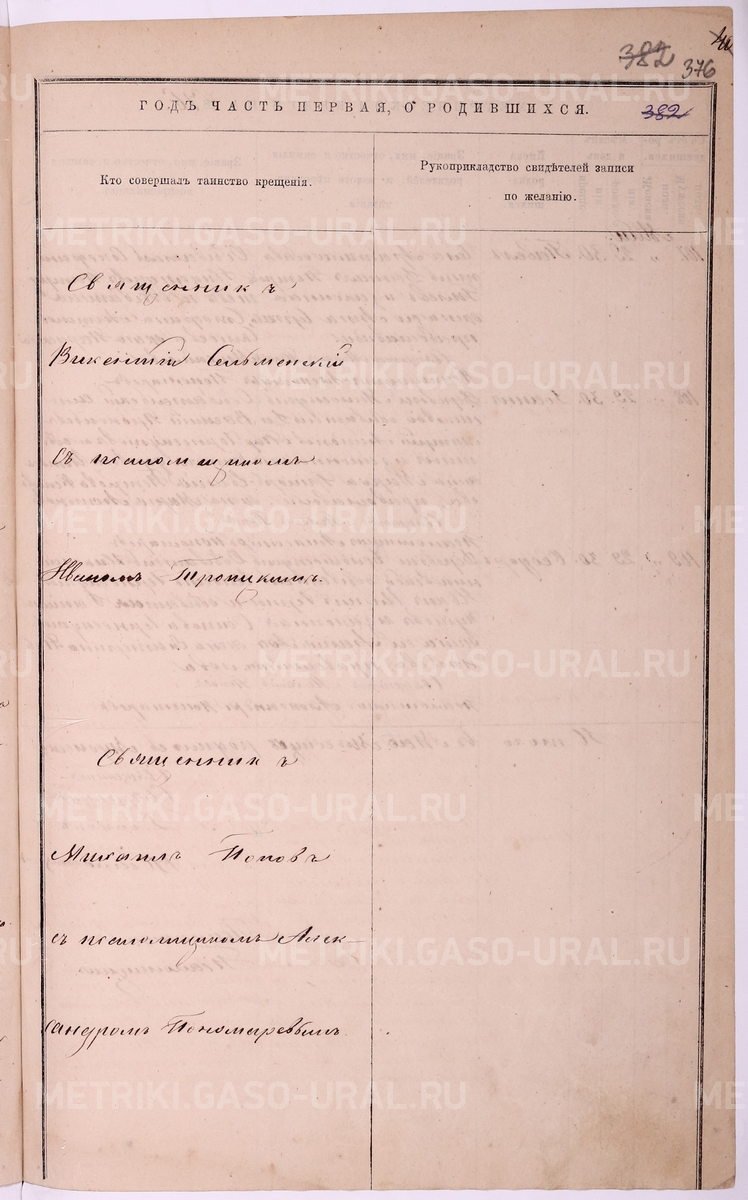 382
376
ГОДЪ ЧАСТЬ ПЕРВАЯ, О РОДИВШИХСЯ.
382
Кто совершалъ таинство крещенія.
Рукоприкладство свидѣтелей записи
по желанію.
Священникъ
Викентій Сельменскій
съ псаломщикомъ
Иваномъ
Священникъ
Михаилъ Поповъ
съ псаломщикомъ Алек-
сандромъ Пономаревымъ.
METRIKI.GASO-URAL.RU